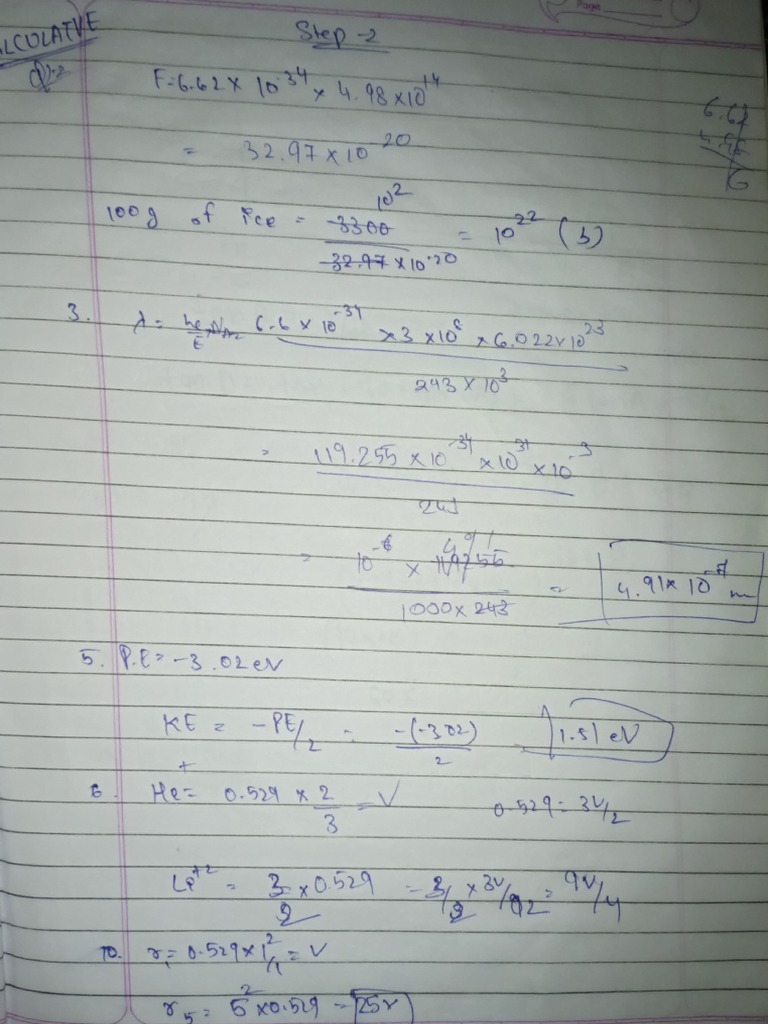 Page
Step-2
F=6.62 × 10^-34 × 4.98 × 10^14
= 32.97 × 10^20
100g of ice = 10^2 3300 / 32.97 × 10^-20 = 10^22 (b)
3. λ = 6.6 × 10^-34 × 3 × 10^8 × 6.022 × 10^23 / 243 × 10^3
= 119.255 × 10^-34 × 10^31 × 10^-3 / 243
= 10^-6 × 491 / 1000 × 243 = 4.91 × 10^-7 m
5. P.E = -3.02 eV
KE = -PE/2 = -(-302)/2 1.51 eV
6. He^+ = 0.529 × 2/3 = V 0.529 = 3V/2
= 3/2 × 0.529 = 3/2 × 3V/2 = 9V/4
10. r₁ = 0.529 × 1^2/1 = V
r5 = 5^2 × 0.529 = 25r